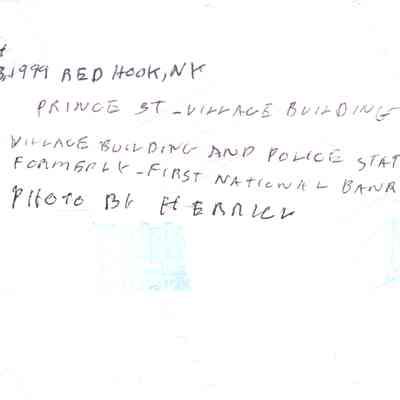 1999 RED HOOK, NY
PRINCE ST - VILLAGE BUILDING
VILLAGE BUILDING AND POLICE STAT
FORMERLY - FIRST NATIONAL BANK
PHOTO BY HERRICK